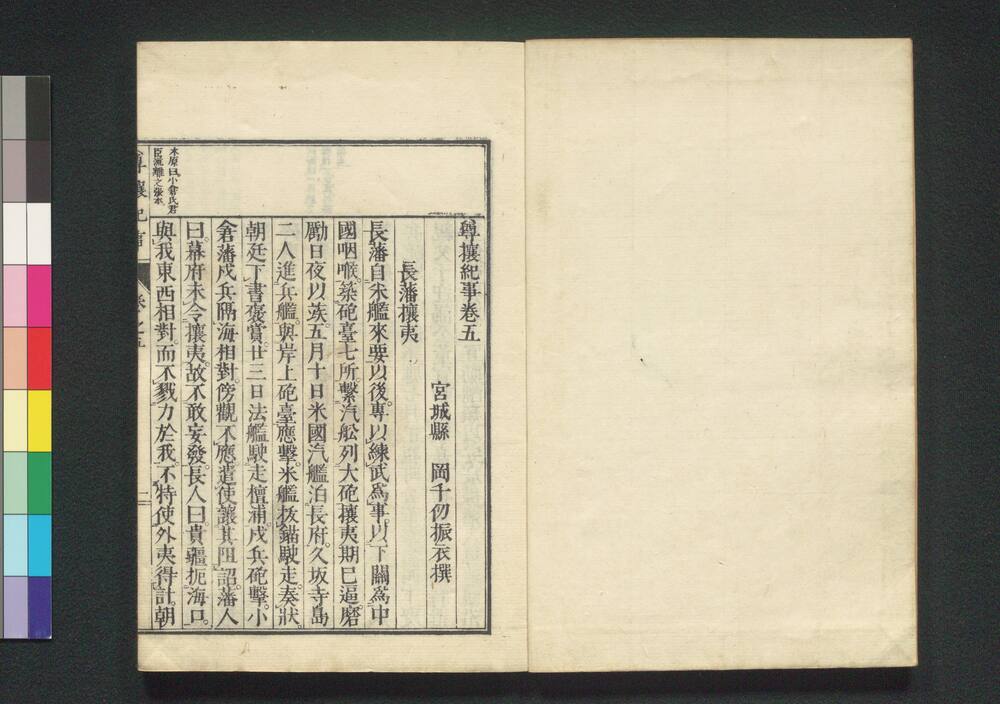 尊攘紀事卷五
宮城縣 岡千仭振衣撰
長藩攘夷
長藩自米艦來要以後。專以練武爲事。以下關爲中
國咽喉。築砲臺七所。繫汽舩列大砲攘夷期已逼。磨
勵日夜以竢。五月十日米國汽艦泊長府。久坂寺島
二人進兵艦。與岸上砲臺應擊。米艦拔錨駛走。奏狀。
朝廷下書褒賞。廿三日法艦駛走檀浦。戍兵砲擊。小
倉藩戍兵隔海相對。傍觀不應。遣使讓其阻詔。藩人
曰。幕府未令攘夷。故不敢妄發。長人曰。貴疆扼海口。
與我東西相對。而不戮力於我。不特使外夷得計。朝
木原曰。小倉氏君
臣流離之張本。
尊攘紀事
卷之五
一